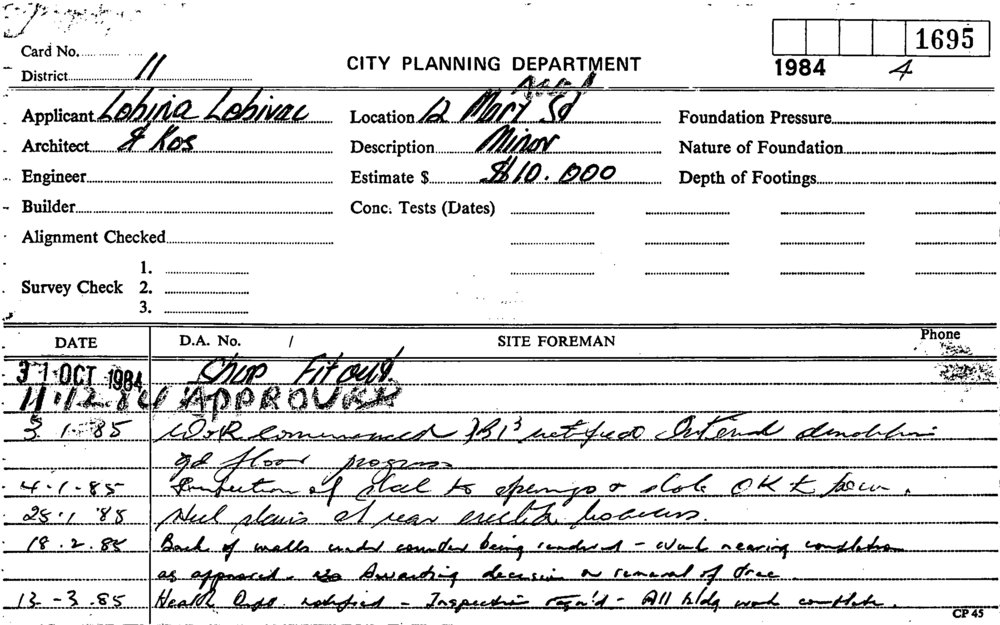 1695
Card No.
CITY PLANNING DEPARTMENT
1984 4
District 11
Applicant Lobina Lobivac
Location 12 Mary St
Foundation Pressure
Architect & Kos
Description Minor
Nature of Foundation
Engineer
Estimate $ $10.000
Depth of Footings
Builder
Conc. Tests (Dates)
Alignment Checked
1.
Survey Check 2.
3.
DATE D.A. No. / SITE FOREMAN Phone
31 OCT 1984 Shop Fitout.
11.12.84 APPROVED
3.1.85 Work commenced notified Internal demolition
gd floor progress
4.1.85 Inspection of steel to openings & slab OK to pour.
25.1.85 Steel stairs at rear erected
18.2.85 Back of walls under counter being rendered - work nearing completion
as approved. Awaiting decision on removal of tree.
13-3.85 Health Dept. notified - Inspection req'd - All bldg work complete.
CP 45